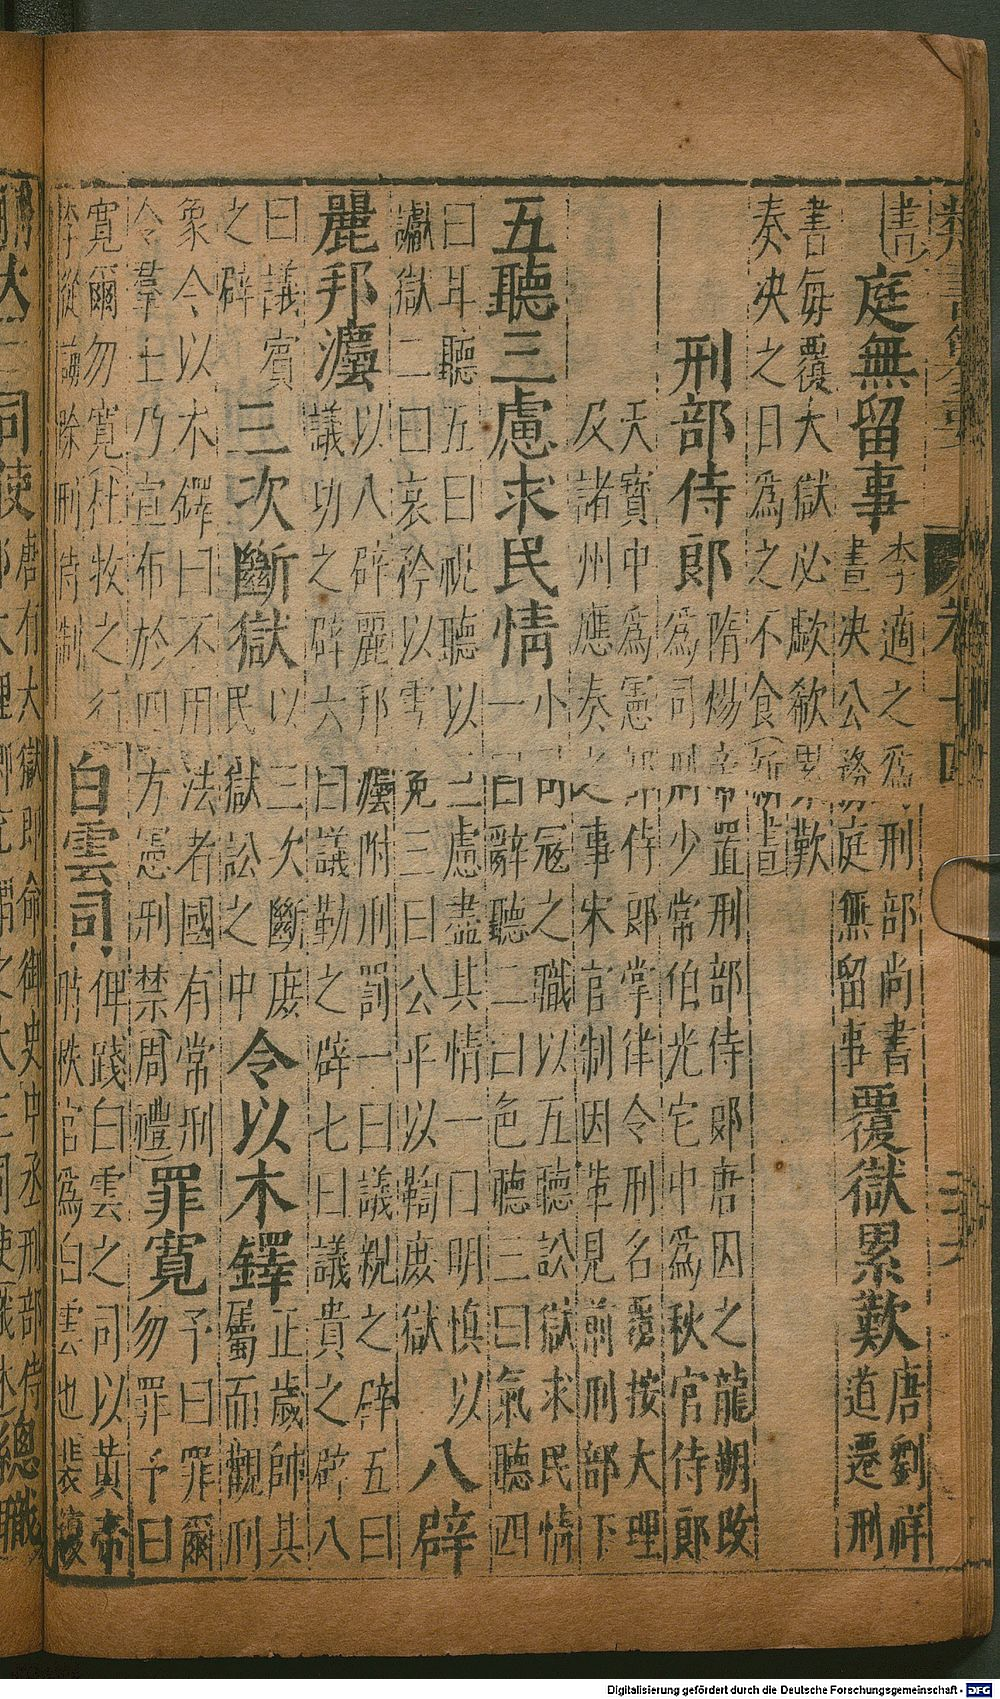 書
庭無留事
李適之爲刑部尚書
晝决公務庭無留事
覆獄累歎
唐劉祥
道遷刑
書每覆大獄必歔欷累歎
奏决之日爲之不食
刑部侍郎
隋煬帝置刑部侍郎唐因之龍朔改
爲司刑少常伯光宅中爲秋官侍郎
天寶中爲憲部侍郎掌律令刑名覆按大理
及諸州應奏之事宋官制因革見前刑部下
五聽三慮求民情
小司冦之職以五聽訟獄求民情
一曰辭聽二曰色聽三曰氣聽四
曰耳聽五曰視聽以三慮盡其情一曰明慎以
讞獄二曰哀矜以雪冤三曰公平以鞫庶獄
八辟
麗邦灋
以八辟麗邦灋附刑罰一曰議親之辟五曰
議功之辟六曰議勤之辟七曰議貴之辟八
曰議賓
之辟
三次斷獄
以三次斷庶
民獄訟之中
令以木鐸
正歲帥其
屬而觀刑
象令以木鐸曰不用法者國有常刑
令羣士乃宣布於四方憲刑禁(周禮)
罪寬
予曰罪爾
勿罪予曰
寬爾勿寬(杜牧之行
李從誨除刑侍制
白雲司
俾踐白雲之司以黃帝
時秩官爲白雲也
Digitalisierung gefördert durch die Deutsche Forschungsgemeinschaft - DFG